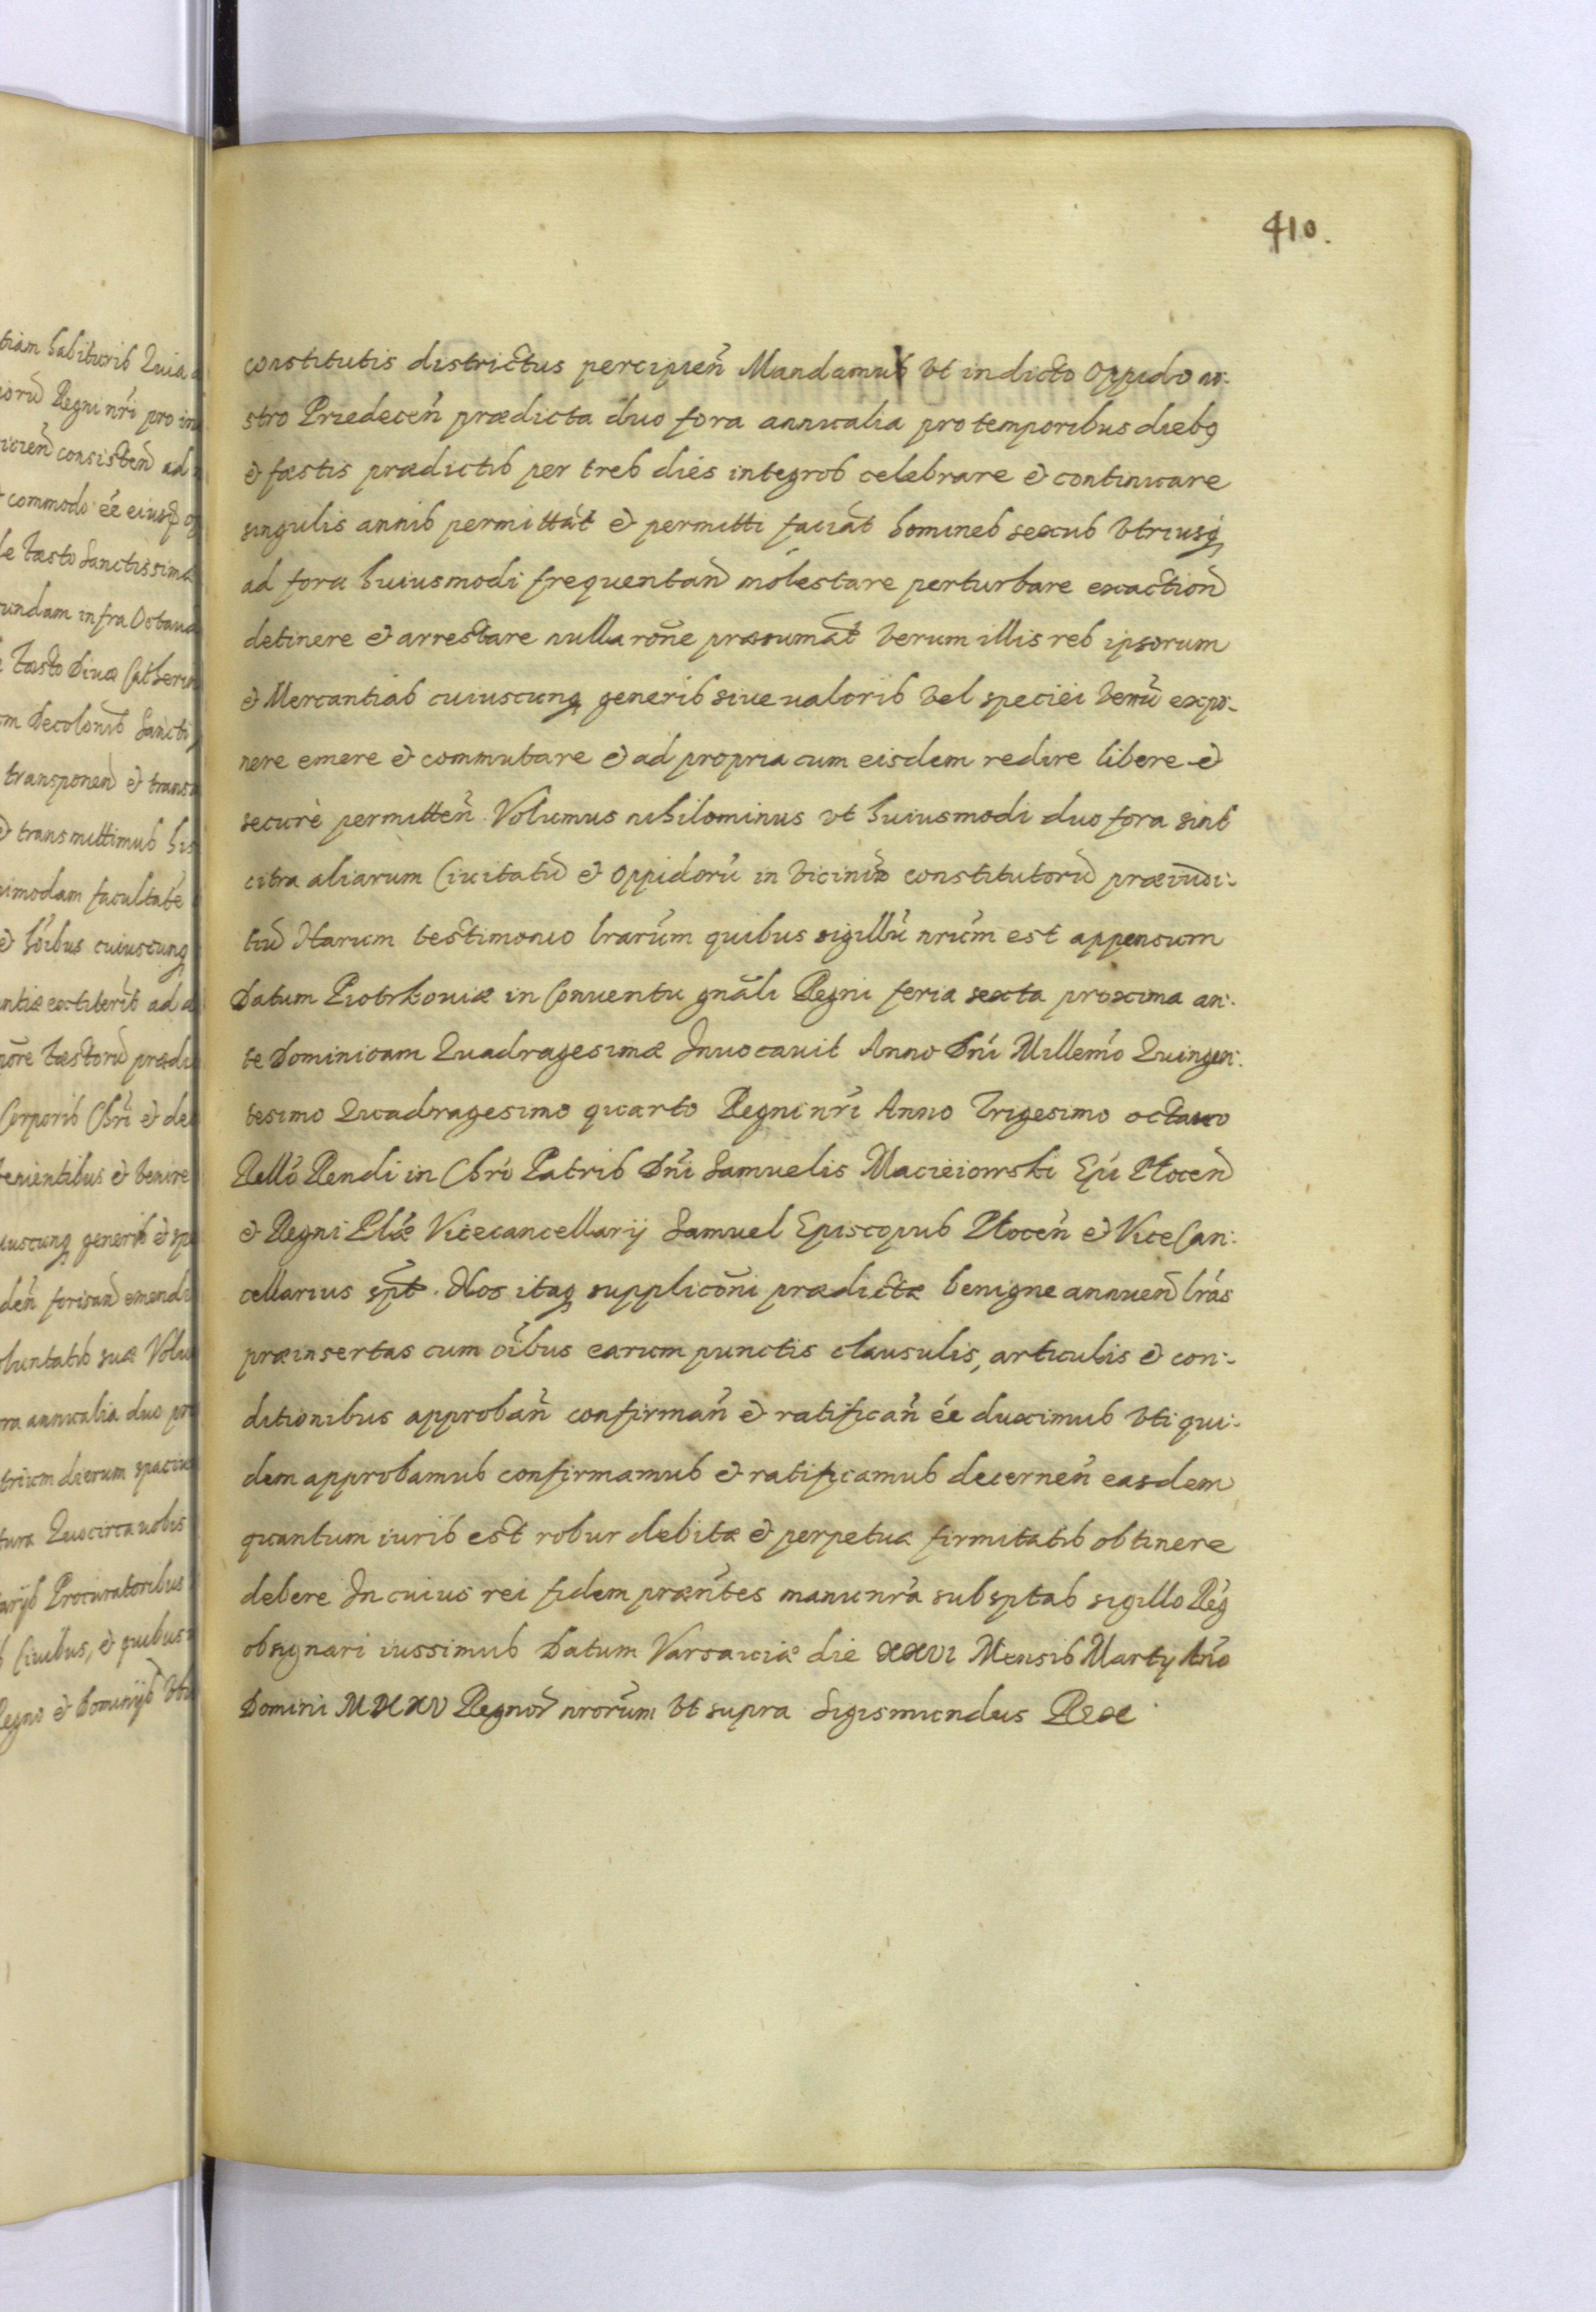 410.
constitutis districtus percipieñ Mandamus Vt in dicto Oppido no-
stro Priedeceñ prædicta duo fora annualia pro temporibus diebq
et fæstis prædictis per tres dies integros celebrare et continuare
singulis annis permittāt et permitti faciāt homines sexus Vtriusq
ad fora huiusmodi frequentañ molestare perturbare exactioñ
detinere et arrestare nulla rōne præsumāt Verum illis res ipsorum
et Mercantias cuiuscunq generis siue ualoris Vel speciei Venū expo-
nere emere et commutare et ad propria cum eisdem redire libere et
securè permitteñ Volumus nihilominus vt huiusmodi duo fora sint
citra aliarum Ciuitatū et Oppidorū in Vicinio constitutorū præiudi-
tiū Harum testimonio lrarūm quibus sigillū nrūm est appensum
Datum Piotrkouiæ in Conuentu gnāli Regni feria sexta proxima an-
te Dominicam Quadragesimæ Inuocauit Anno Dnī Millemō Quingen-
tesimo Quadragesimo quarto Regni nrī Anno Trigesimo octauo
Rellō Rendi in Chrō Patris Dnī Samuelis Macieiowski Epī Ploceñ
et Regni Plæ Vicecancellarij Samuel Episcopus Ploceñ et Vice Can-
cellarius spt. Nos itaq supplicōni prædictæ benigne annueñ lrās
præinsertas cum oībus earum punctis clausulis, articulis et con-
ditionibus approbañ confirmañ et ratificañ ēe duximus Vti qui-
dem approbamus confirmamus et ratificamus decerneñ easdem
quantum iuris est robur debitæ et perpetuæ firmitatis obtinere
debere In cuius rei fidem præntes manu nrā subsptas sigillo Reg
obsignari iussimus Datum Varsauiæ die XXVI Mensis Martij Anō
Domini MDXXV Regnor nrorūm Vt supra Sigismundus Rex